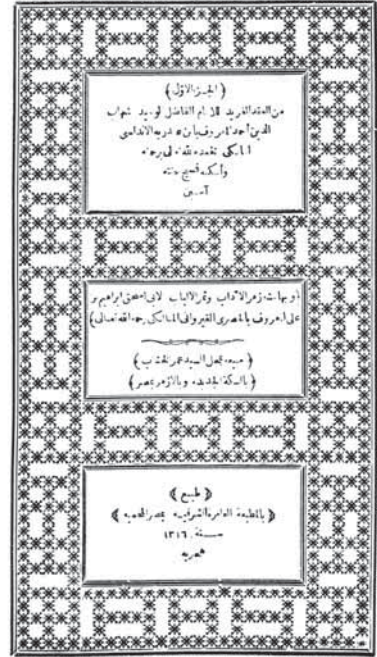 (الجزء الاول)
من العقد الفريد للامام الفاضل الوحيد شهاب
الدين أحمد المعروف بابن عبد ربه الاندلسى
المالكى تغمده الله برحمته
وأسكنه فسيح جنته
آمين
(وبهامشه زهر الآداب وثمر الالباب لابى اسحق ابراهيم بن
على المعروف بالحصرى القيروانى المالكى رحمه الله تعالى)
السيد عمر الخشاب
(بالسكة الجديده وبالازهر بمصر)
(طبع)
(بالمطبعة العامرة الشرفيه بمصر المحميه)
سنة ١٣١٦
هجريه